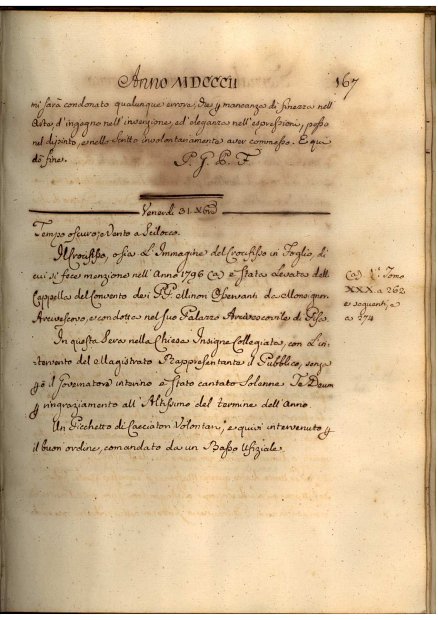 Anno MDCCCII
167
mi sarà condonato qualunque errore, che p mancanza di finezza nell'
Arte, d'ingegno nell'invenzione, ed eleganza nell'espressioni, posso
nel dipinto, e nello Scritto involontariamente aver commesso. E qui
dò fine.
P. G. B. F.
Venerdì 31. Xbre
Tempo oscuro, e Vento a Scilocco.
Il Crocifisso, o sia L'Immagine del Crocifisso in Foglio, di
cui si fece menzione nell'Anno 1796 (a) è Stata Levata dalla
Cappella del Convento dei PP. Osservanti da Monsignor
Arcivescovo, e condotta nel suo Palazzo Arcivescovile di Pisa.
(a) Tomo
XXX. a 262
e sequenti, e
a 274
In questa Sera nella Chiesa Insigne Collegiata, con L'in-
tervento del Magistrato Rappresentante il Pubblico, senza
il Governatore interino è Stato cantato Solenne Te Deum
p ringraziamento all'Altissimo del termine dell'Anno.
Un Picchetto di Cacciatori Volontari, è quivi intervenuto p
il buon ordine, comandato da un Basso Ufiziale.